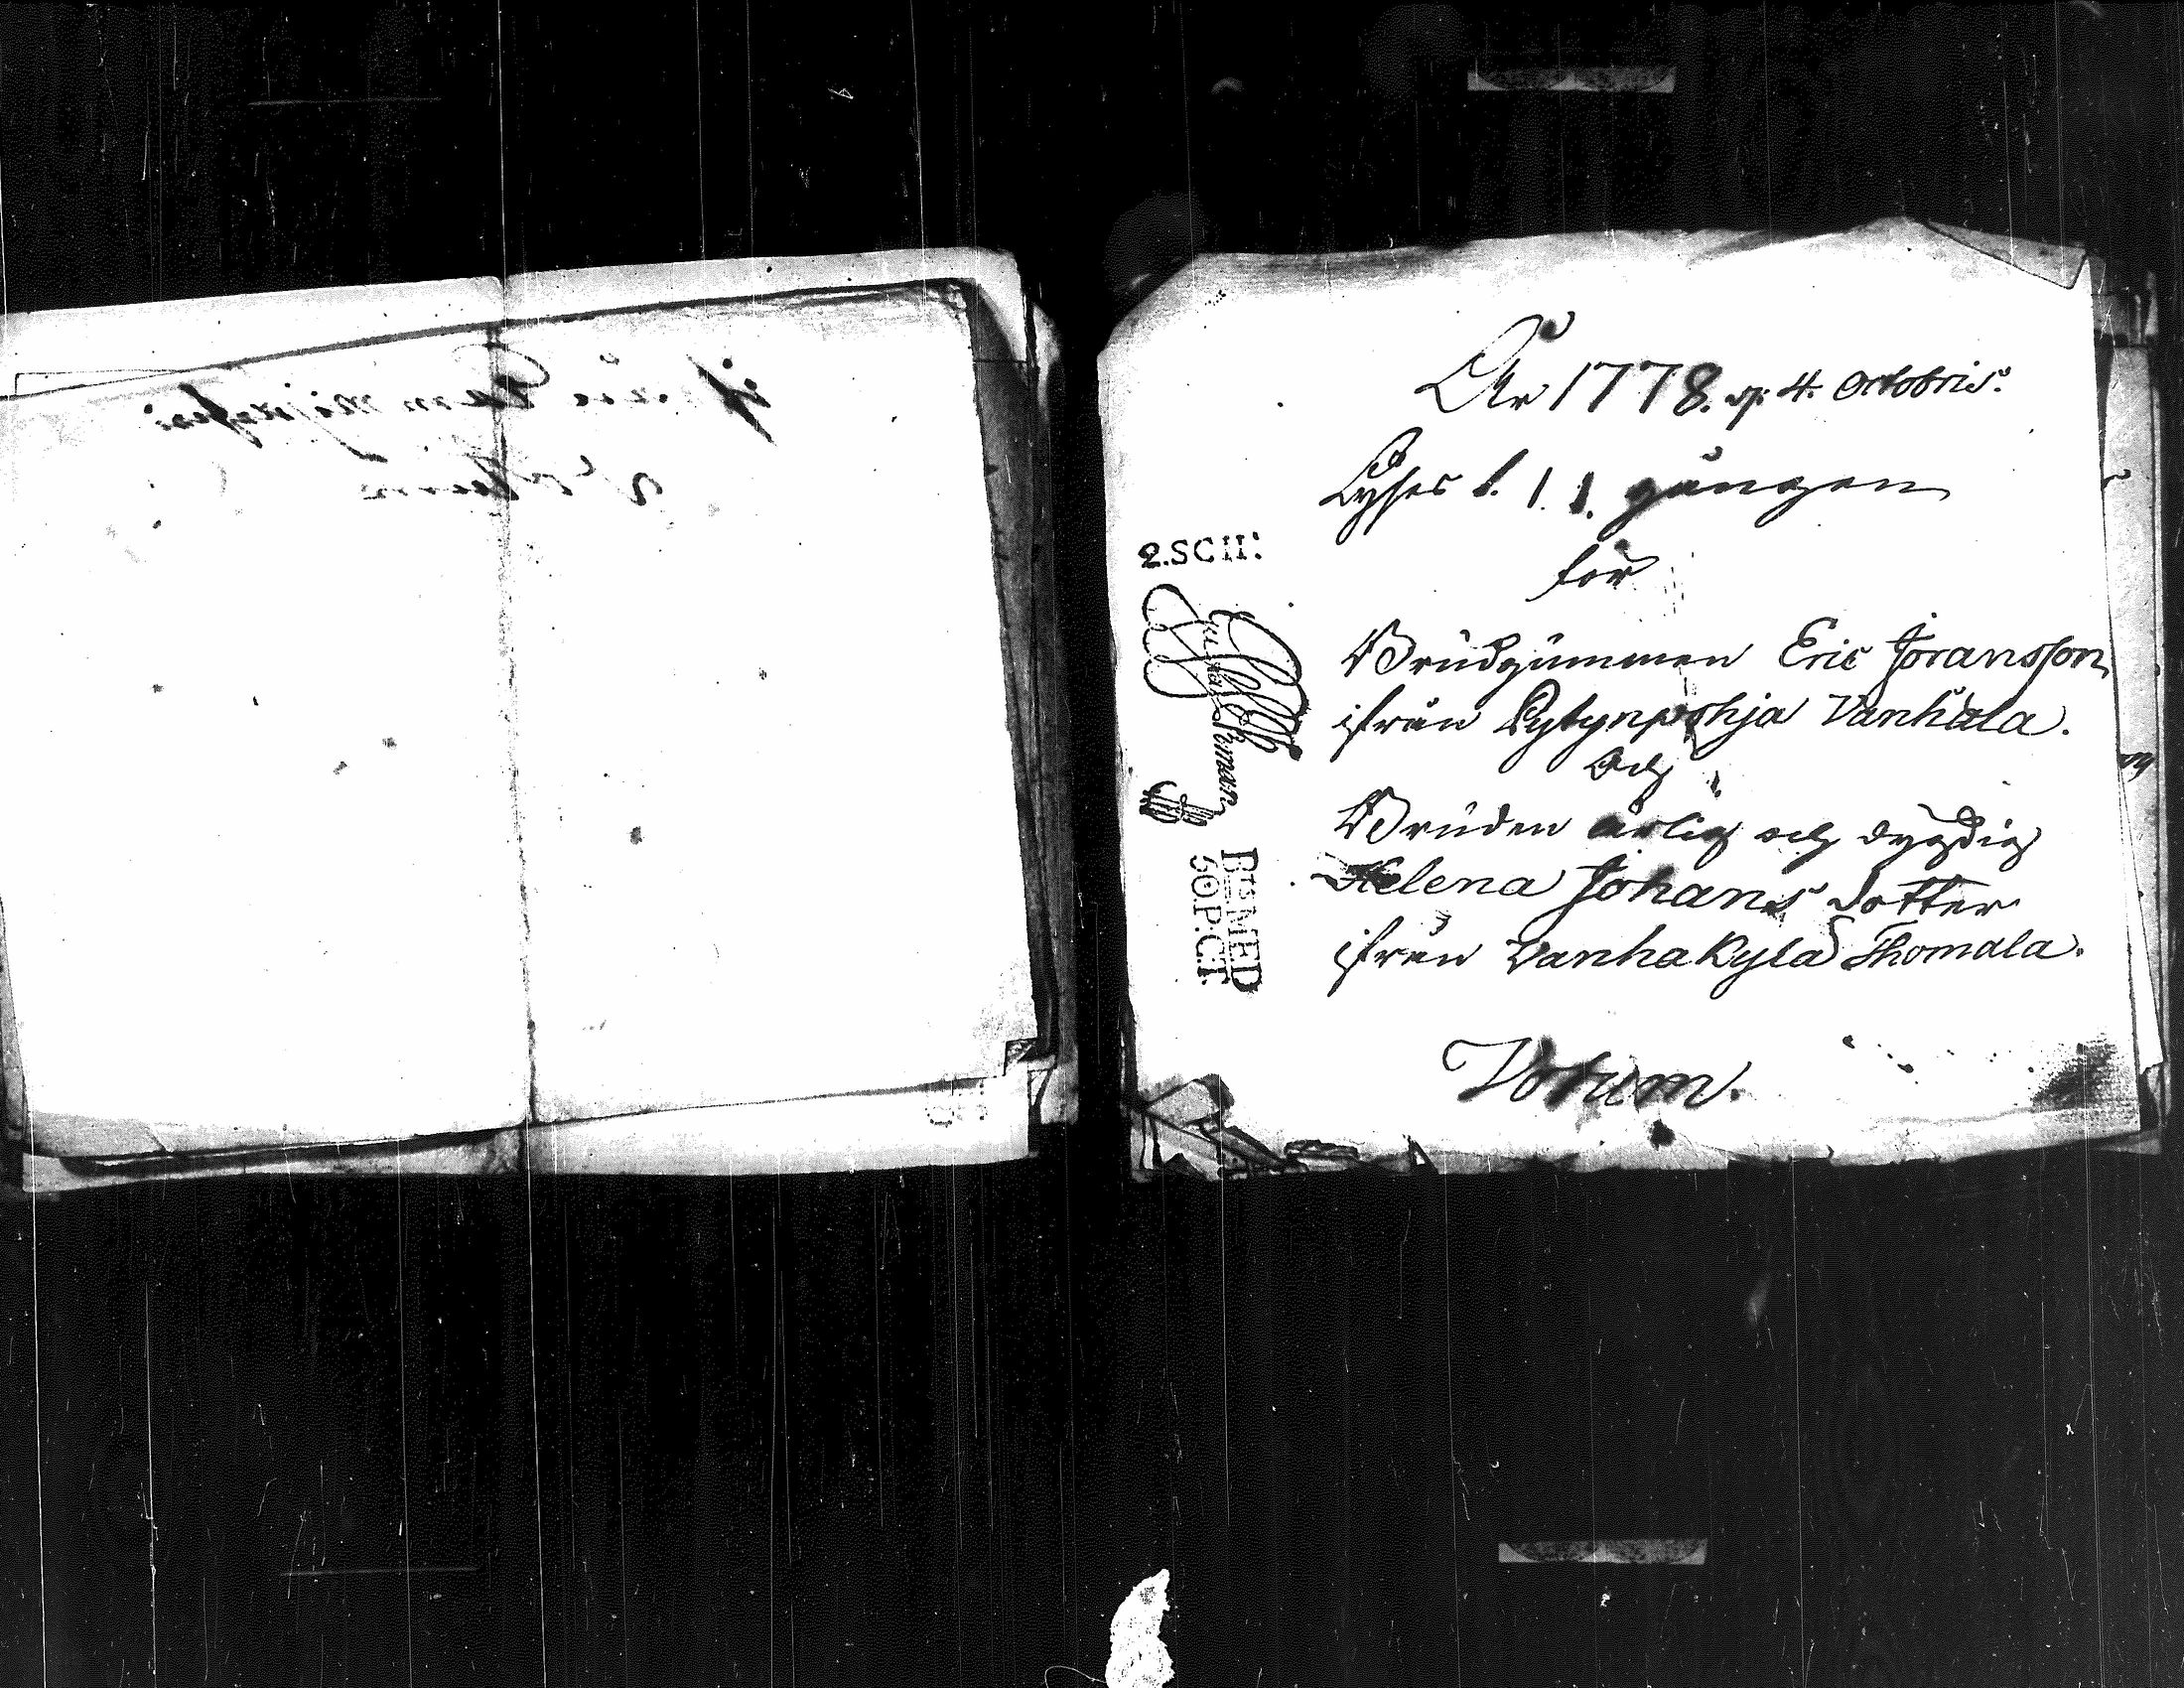 År 1778. d. 4. Octobris.
Lyses 1. 1. 1. gången
för
Brudgummen Eric Jöransson
ifrån Pytynpohja Vanhala.
Och
Bruden ärlig och dygdig
Helena Johans dotter
ifrån Vanhakylä Thomala.
Votum.
2.SCH:
BET. MED
50.P.C.T.